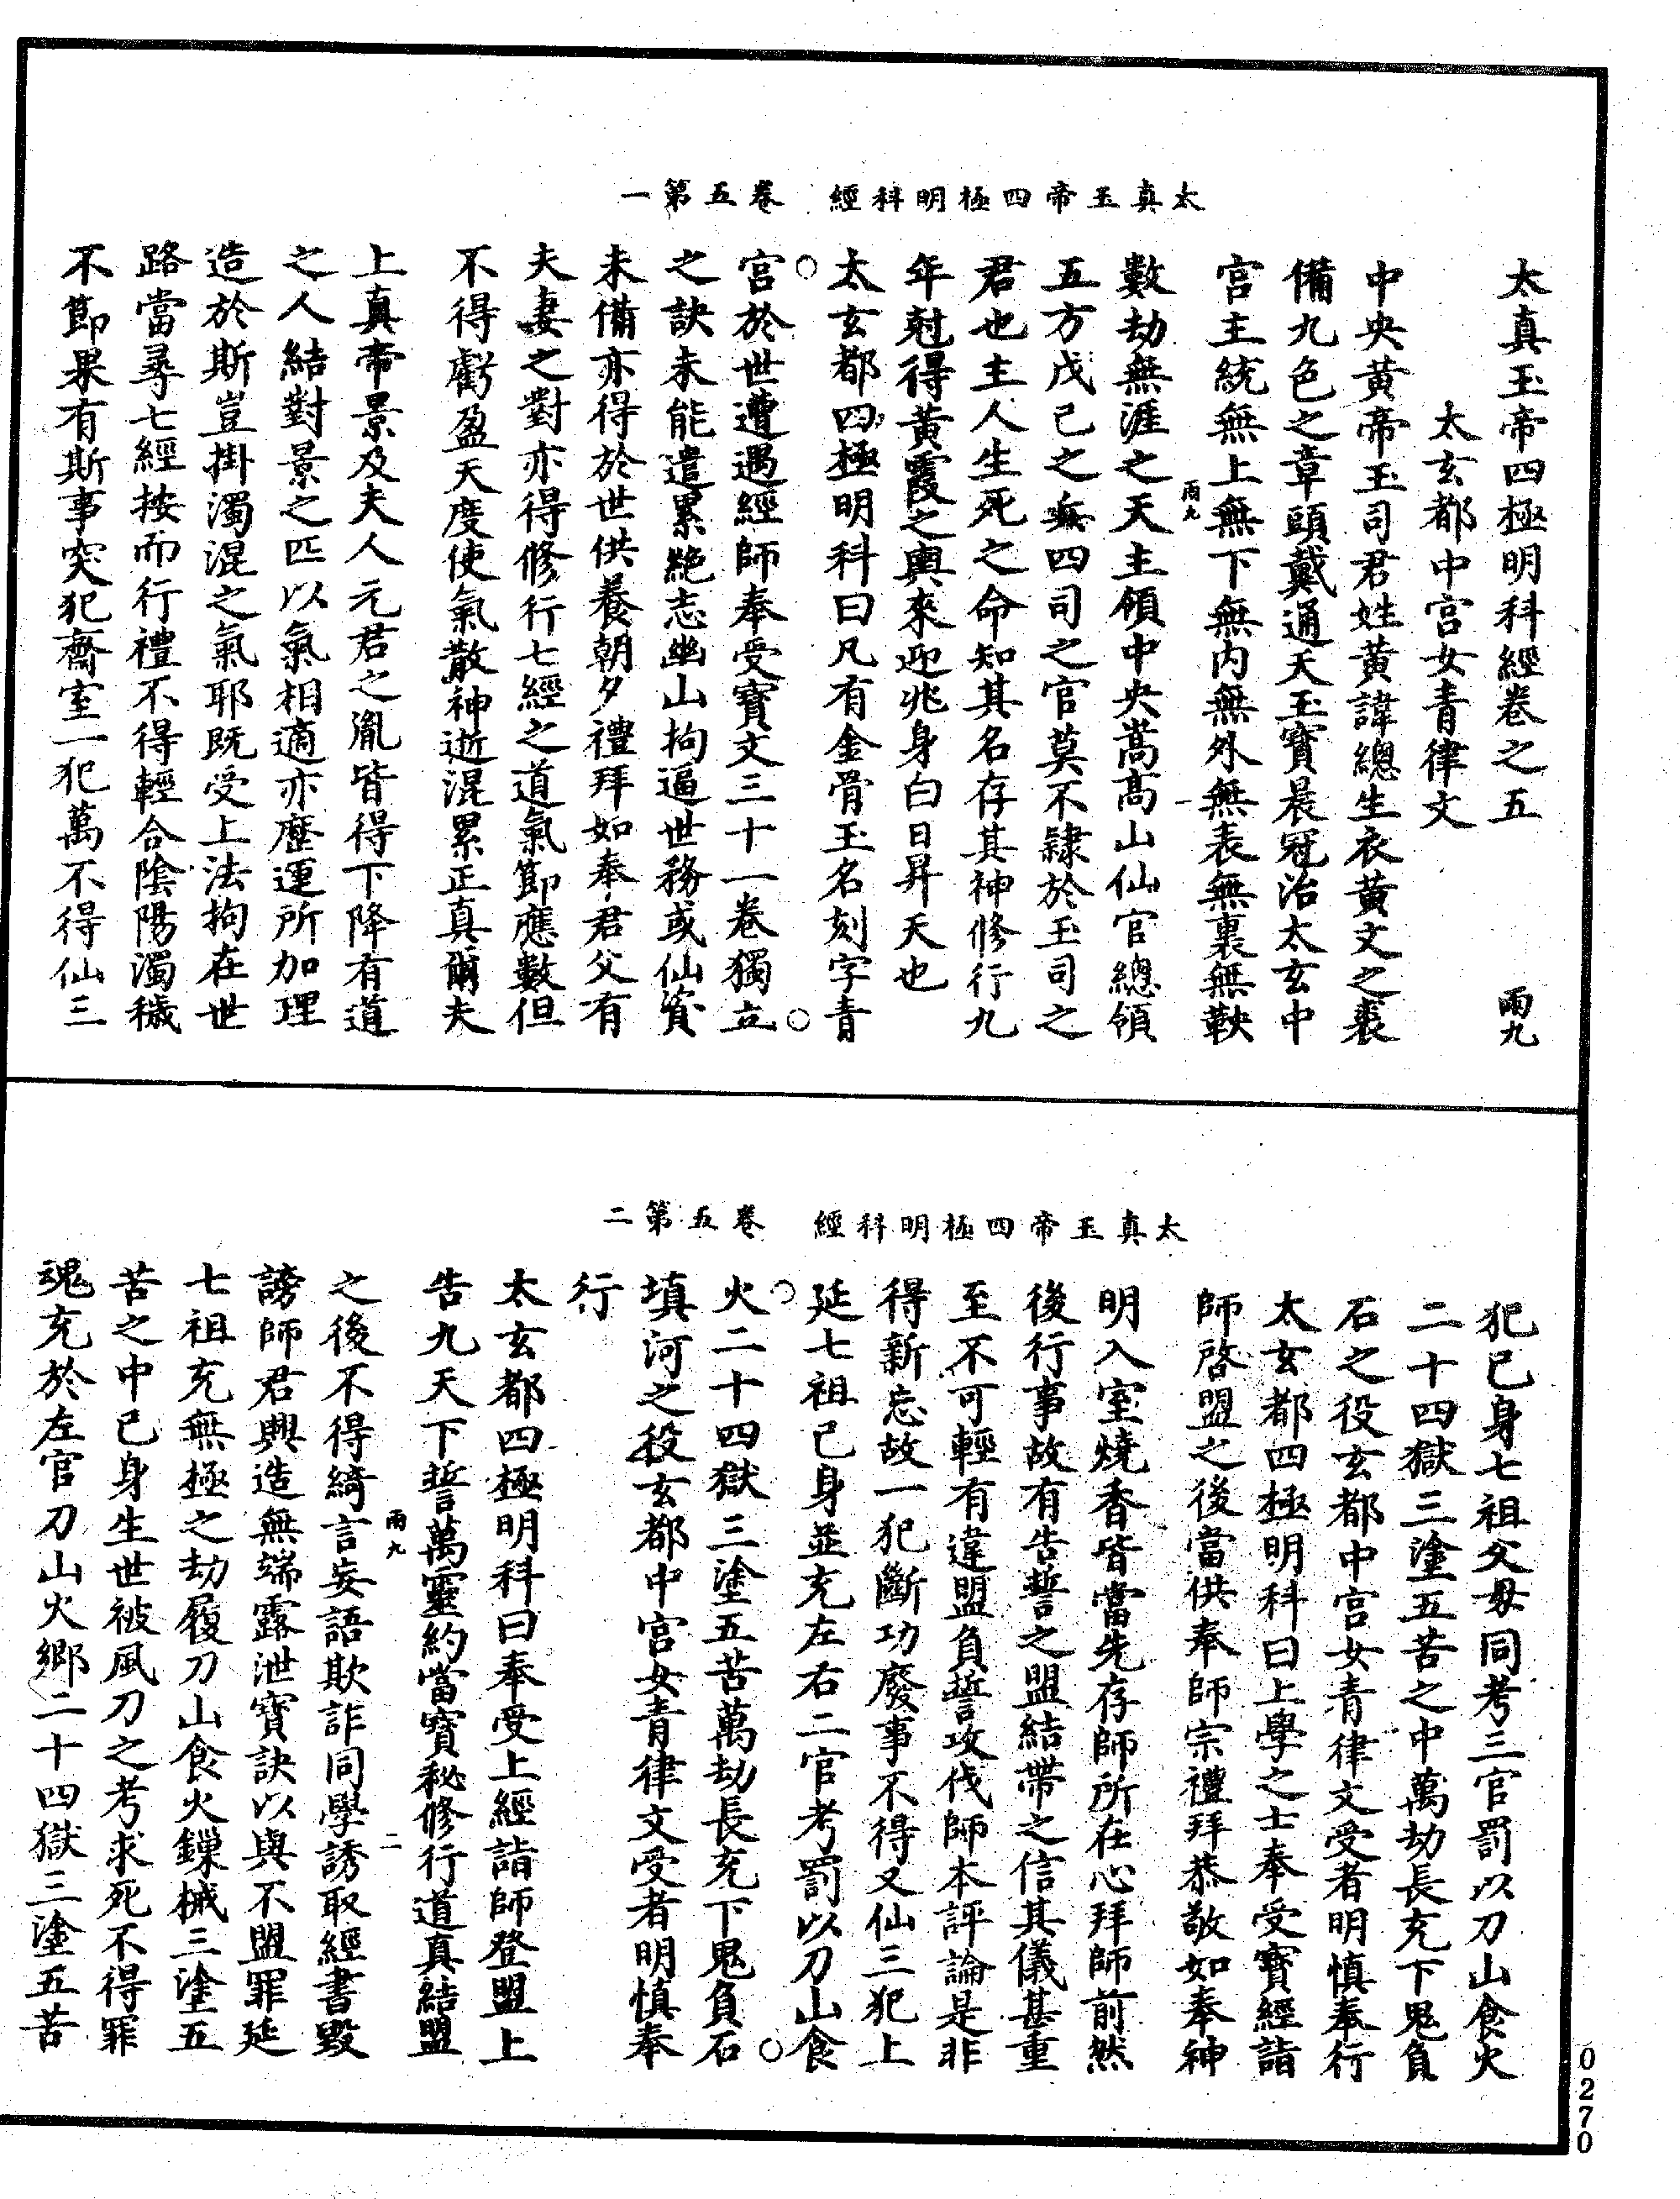 太真玉帝四極明科經　卷五第一
太真玉帝四極明科經卷之五　雨九
太玄都中宮女青律文
中央黃帝玉司君姓黃諱總生衣黃文之裘
備九色之章頭戴通天玉寶晨冠治太玄中
宮主統無上無下無內無外無表無裏無鞅
雨九
一
數劫無涯之天主領中央嵩高山仙官總領
五方戊己之無四司之官莫不隸於玉司之
君也主人生死之命知其名存其神修行九
年尅得黃霞之輿來迎兆身白日昇天也
太玄都四極明科曰凡有金骨玉名刻字青
宮於世遭遇經師奉受寶文三十一卷獨立
之訣未能遣累絕志幽山拘逼世務或仙資
未備亦得於世供養朝夕禮拜如奉君父有
夫妻之對亦得修行七經之道氣節應數但
不得虧盈天度使氣散神逝混累正真爾夫
上真帝景及夫人元君之胤皆得下降有道
之人結對景之匹以氣相適亦歷運所加理
造於斯豈掛濁混之氣耶既受上法拘在世
路當尋七經按而行禮不得輕合陰陽濁穢
不節果有斯事突犯齋室一犯萬不得仙三
太真玉帝四極明科經　卷五第二
犯己身七祖父母同考三官罰以刀山食火
二十四獄三塗五苦之中萬劫長充下鬼負
石之役玄都中宮女青律文受者明慎奉行
太玄都四極明科曰上學之士奉受寶經詣
師啓盟之後當供奉師宗禮拜恭敬如奉神
明入室燒香皆當先存師所在心拜師前然
後行事故有告誓之盟結帶之信其儀甚重
至不可輕有違盟負誓攻伐師本評論是非
得新忘故一犯斷功廢事不得又仙三犯上
延七祖己身並充左右二官考罰以刀山食
火二十四獄三塗五苦萬劫長充下鬼負石
填河之役玄都中宮女青律文受者明慎奉
行
太玄都四極明科曰奉受上經詣師登盟上
告九天下誓萬靈約當寶秘修行道真結盟
雨九
二
之後不得綺言妄語欺詐同學誘取經書毀
謗師君興造無端露泄寶訣以與不盟罪延
七祖充無極之劫履刀山食火鏁械三塗五
苦之中己身生世被風刀之考求死不得罪
魂充於左官刀山火鄉二十四獄三塗五苦
0270